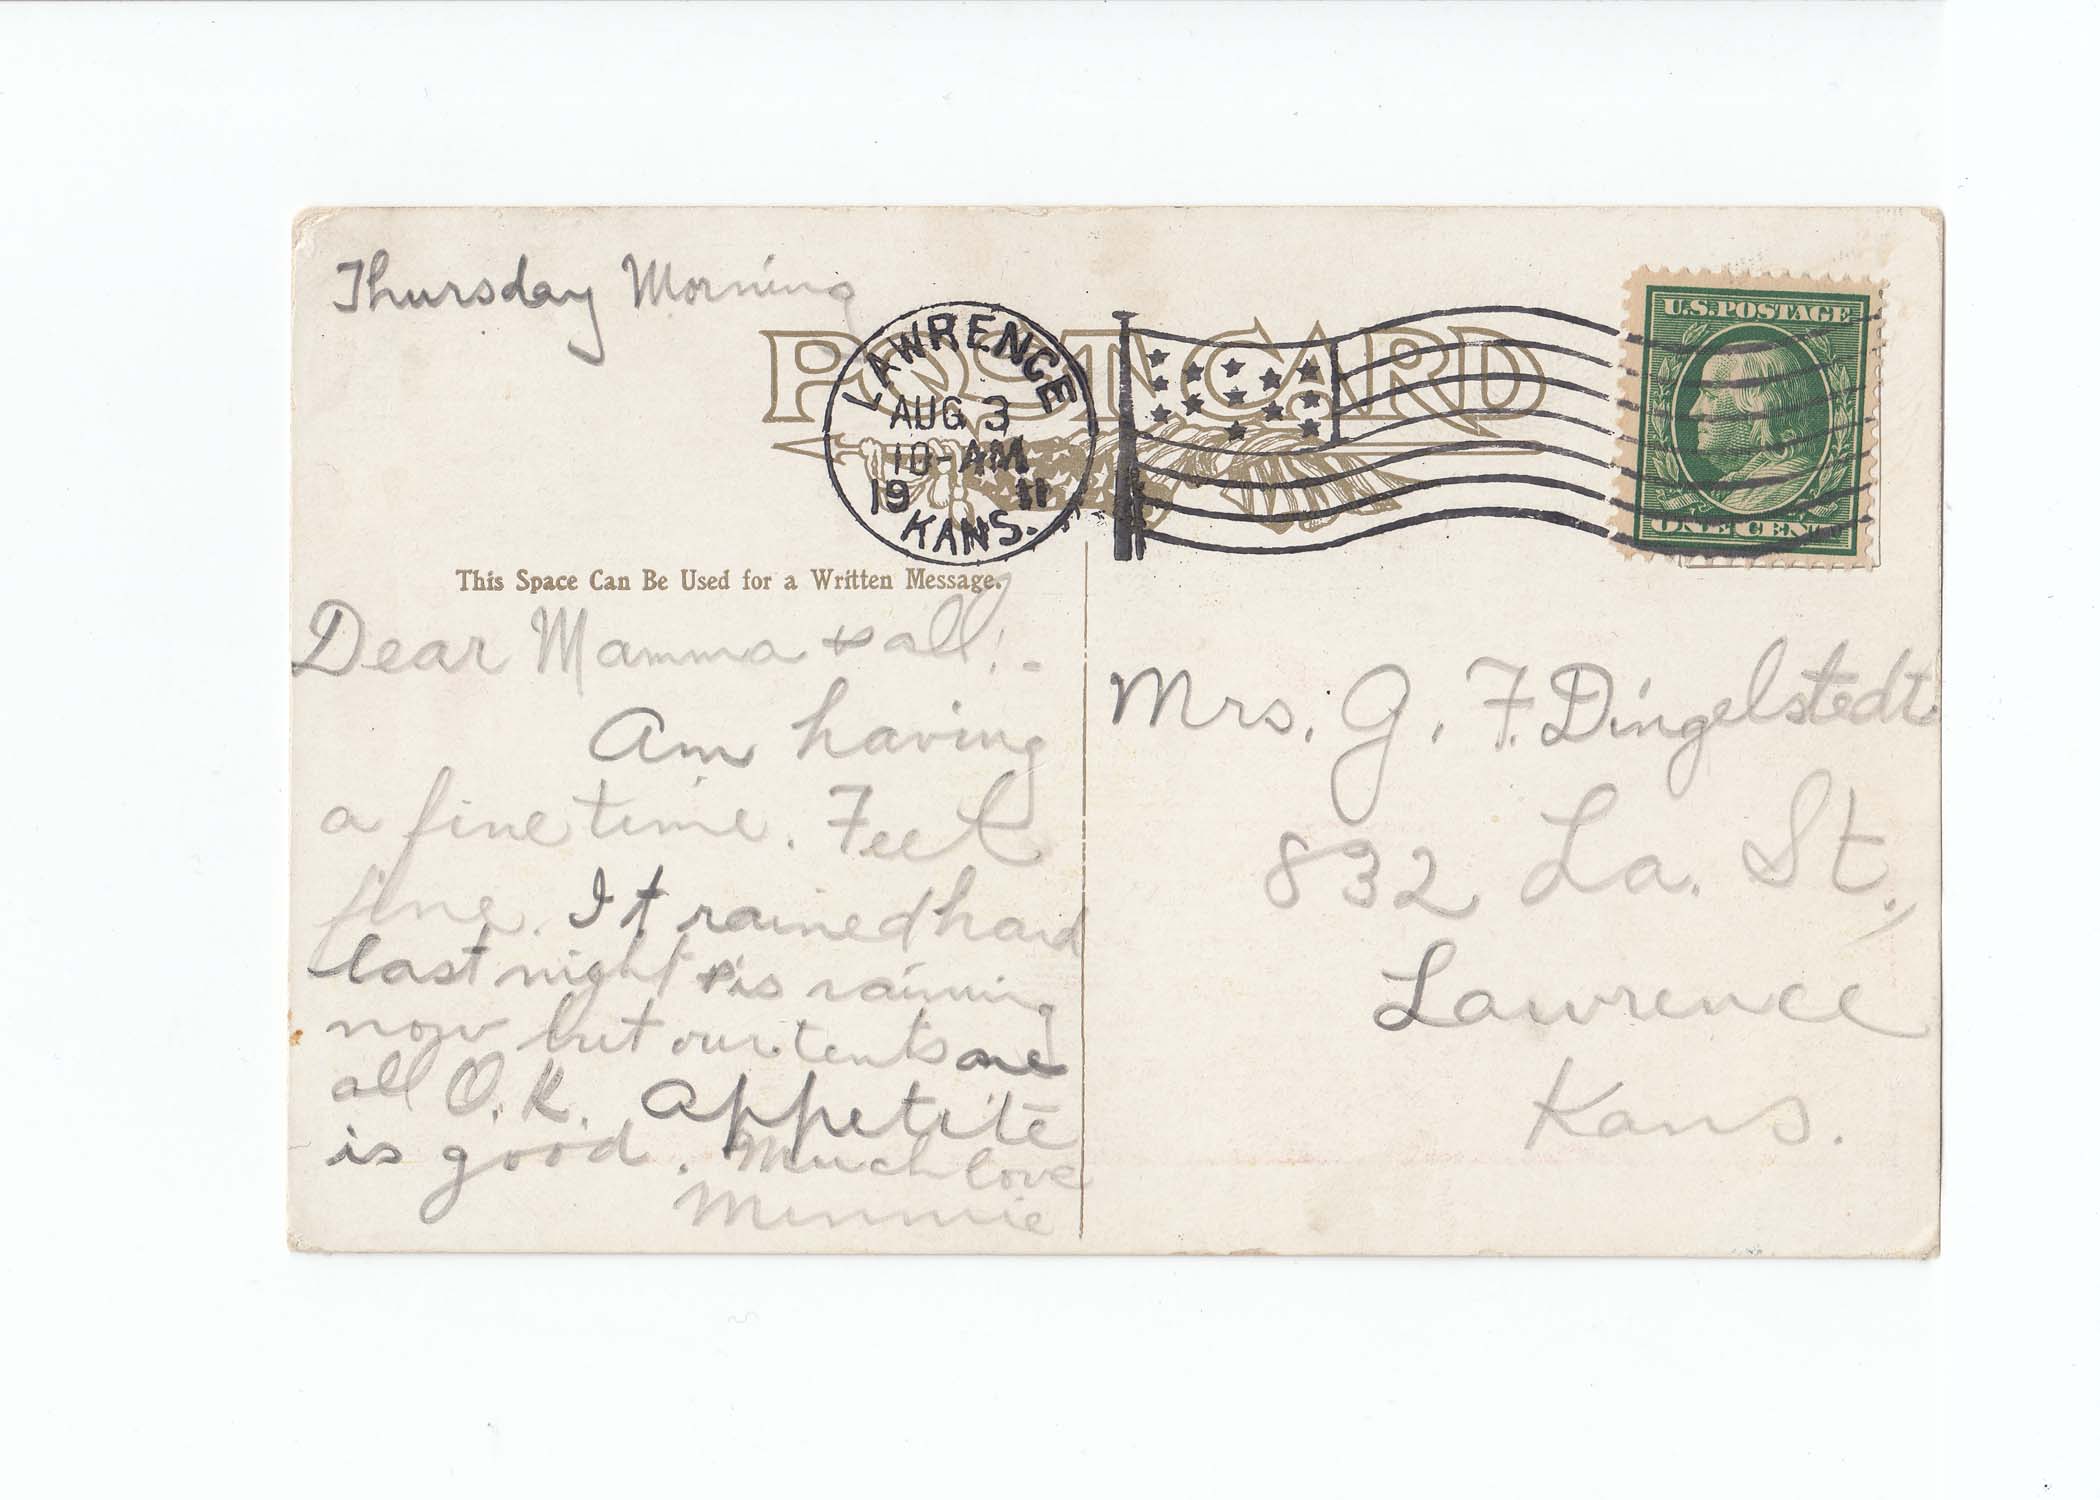 Thursday Morning
POST CARD
LAWRENCE
AUG 3
10-AM
19 11
KANS.
U.S. POSTAGE
ONE CENT
This Space Can Be Used for a Written Message.
Dear Mamma & all:-
Am having
a fine time. Feel
fine. It rained hard
last night & is raining
now but our tents are
all O.K. Appetite
is good. Much love
Minnie
Mrs. G. F. Dingelstedt
832 La. St.,
Lawrence
Kans.